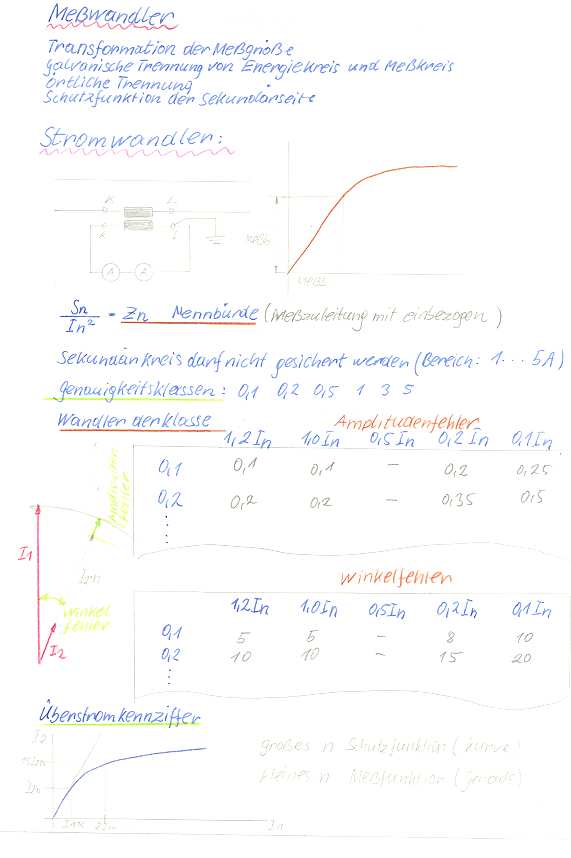 Meßwandler
Transformation der Meßgröße
galvanische Trennung von Energiekreis und Meßkreis
örtliche Trennung
Schutzfunktion der Sekundärseite
Stromwandler:
K L
k l
A
Sn
In² = Zn Nennbürde (Meßzuleitung mit einbezogen)
Sekundärkreis darf nicht gesichert werden (Bereich: 1...5A)
Genauigkeitsklassen: 0,1 0,2 0,5 1 3 5
Wandler der Klasse Amplitudenfehler
1,2In 1,0In 0,5In 0,2In 0,1In
0,1 0,1 0,1 - 0,2 0,25
0,2 0,2 0,2 - 0,35 0,5
I1
Winkel
fehler
I2
Winkelfehler
1,2In 1,0In 0,5In 0,2In 0,1In
0,1 5 5 - 8 10
0,2 10 10 - 15 20
Überstromkennziffer
I2
großes n Schutzfunktion (Kurve)
kleines n Meßfunktion (gerade)
I1